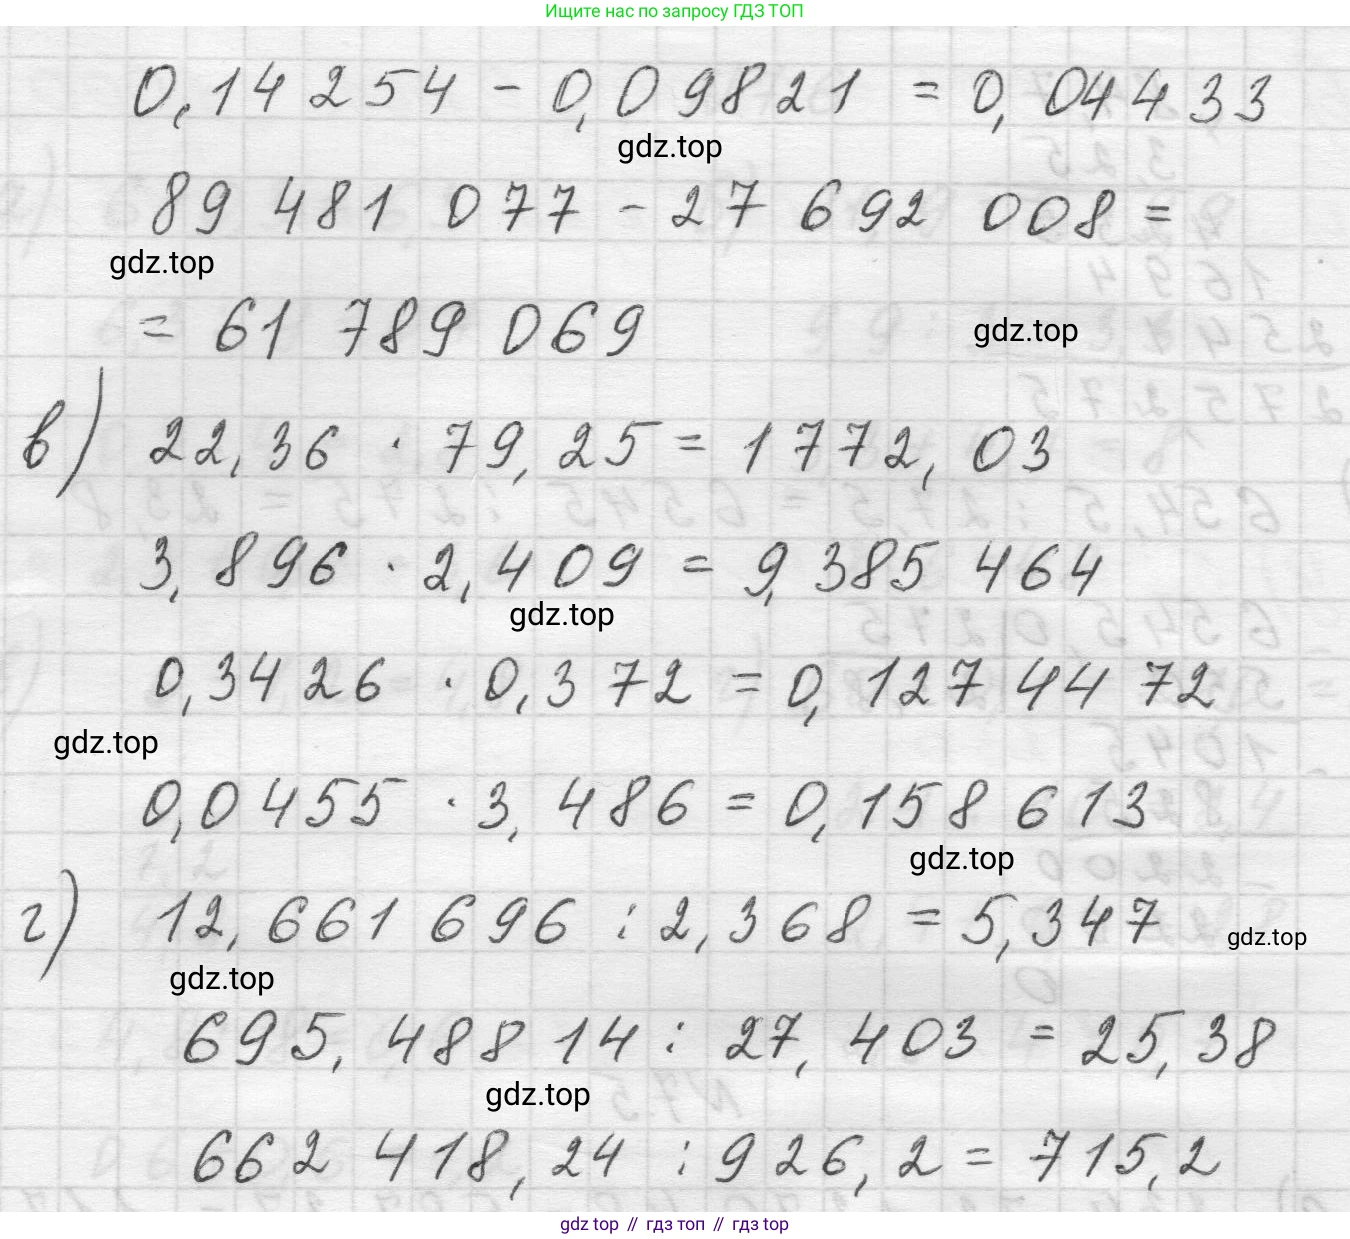 Ищите нас по запросу ГДЗ ТОП
0,14254 - 0,09821 = 0,04433
gdz.top
89 481 077 - 27 692 008 =
gdz.top
= 61 789 069
gdz.top
в) 22,36 · 79,25 = 1772,03
3,896 · 2,409 = 9,385 464
gdz.top
0,3426 · 0,372 = 0,127 44 72
gdz.top
0,0455 · 3,486 = 0,158 613
gdz.top
г) 12,661 696 : 2,368 = 5,347
gdz.top
gdz.top
695,488 14 : 27,403 = 25,38
gdz.top
662 418,24 : 926,2 = 715,2
gdz top // гдз топ // гдз top